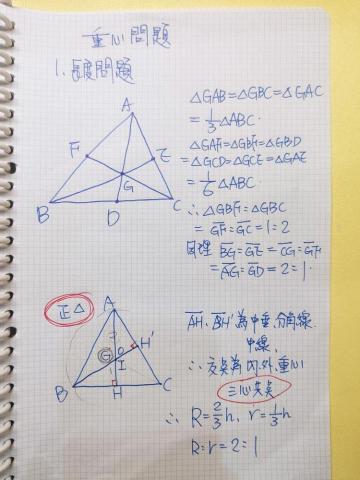 重心問題
1. 長度問題
A
F
E
G
B
D
C
△GAB=△GBC=△GAC
=1/3△ABC.
△GAF=△GBF=△GBD
=△GCD=△GCE=△GAE
=1/6△ABC.
∴△GBF:△GBC
=GF:GC=1:2
同理 BG:GE=CG:GF
=AG:GD=2:1.
正△
A
G
O
H'
I
B
H
C
AH、BH'為中垂、分角線.
中線.
∴交點為內、外、重心
三心共點
∴R=2/3h, r=1/3h
R:r=2:1